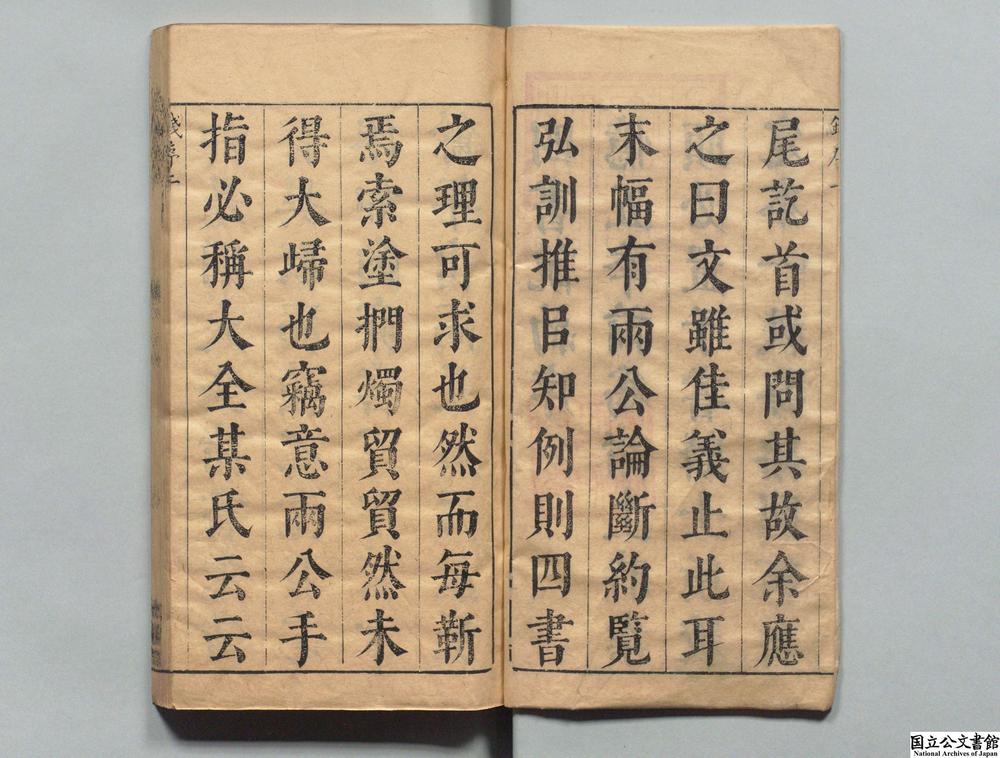 尾訖首或問其故余應
之曰文雖佳義止此耳
末幅有兩公論斷約覽
弘訓推㠯知例則四書
之理可求也然而每靳
焉索塗捫燭貿貿然未
得大歸也竊意兩公手
指必稱大全某氏云云
国立公文書館
National Archives of Japan